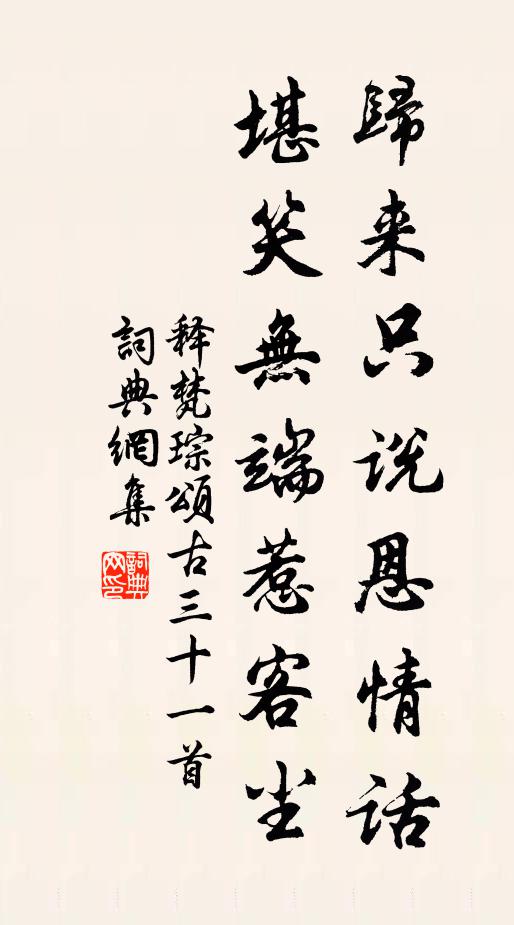 歸来只说恩情话
堪笑無端惹客尘
释梵琮頌古三十一首
詞典網集
詞典
网印